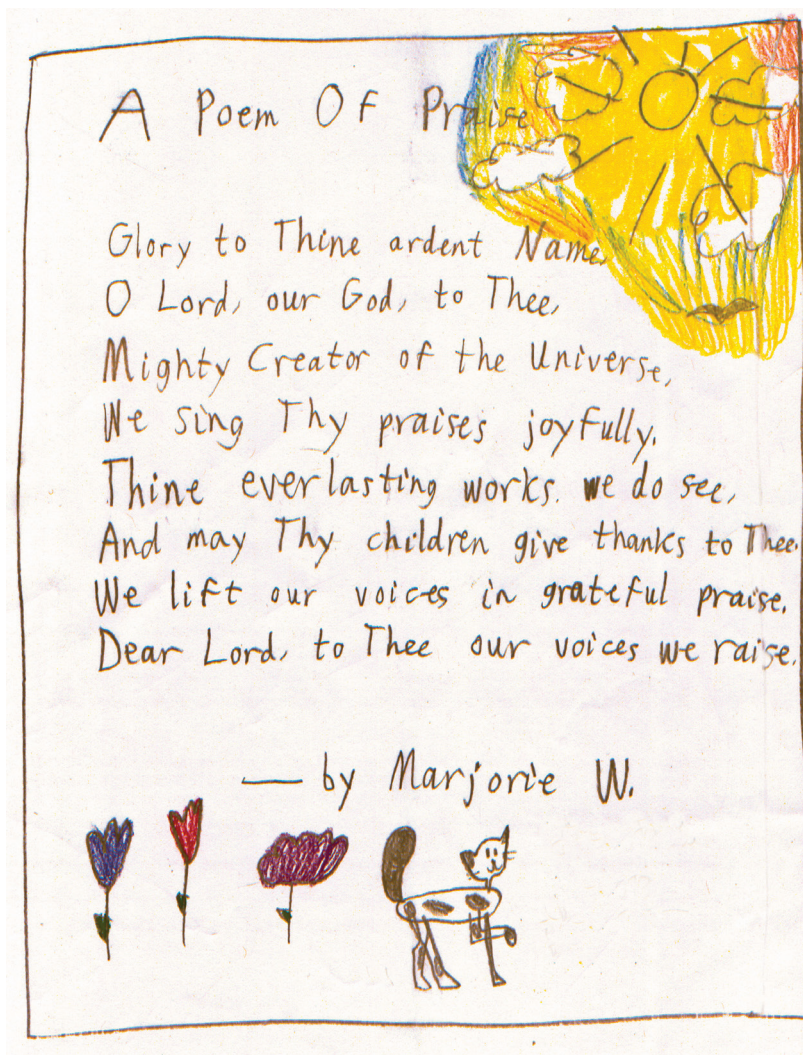 A Poem Of Praise
Glory to Thine ardent Name,
O Lord, our God, to Thee,
Mighty Creator of the Universe,
We sing Thy praises joyfully.
Thine everlasting works we do see,
And may Thy children give thanks to Thee.
We lift our voices in grateful praise.
Dear Lord, to Thee our voices we raise.
— by Marjorie W.